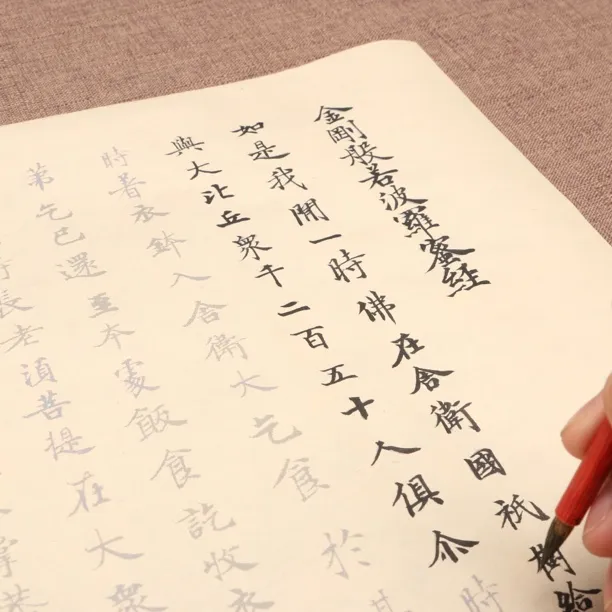 金剛般若波羅蜜經
如是我聞一時佛在舍衛國祇樹給
與大比丘衆千二百五十人俱尒時
時著衣鉢入舍衛大乞食於其
第乞已還至本處飯食訖收衣
時長老須菩提在大衆
掌恭